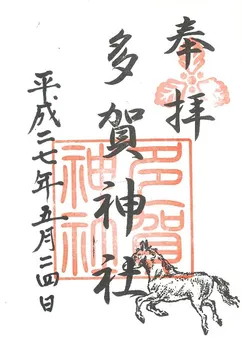 奉拝
多賀神社
多賀神社
平成二七年五月二四日